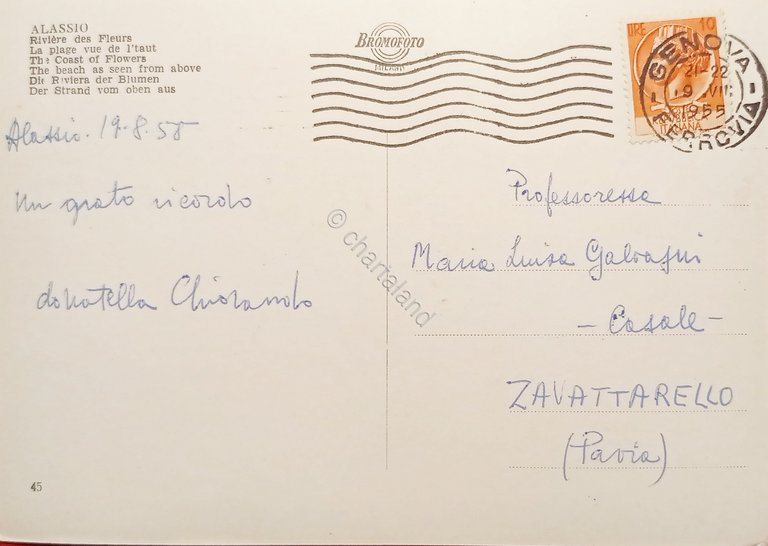 ALASSIO
Rivière des Fleurs
La plage vue de l'taut
The Coast of Flowers
The beach as seen from above
Die Riviera der Blumen
Der Strand vom oben aus
BROMOFOTO
MILANO
LIRE 10
ITALIANA
GENOVA
21-22
1955
FERROVIA
Alassio. 19.8.55
Un grato ricordo
donatella Chiorando
Professoressa
Maria Luisa Galvagni
- Casale -
ZAVATTARELLO
(Pavia)
© chartaland
45